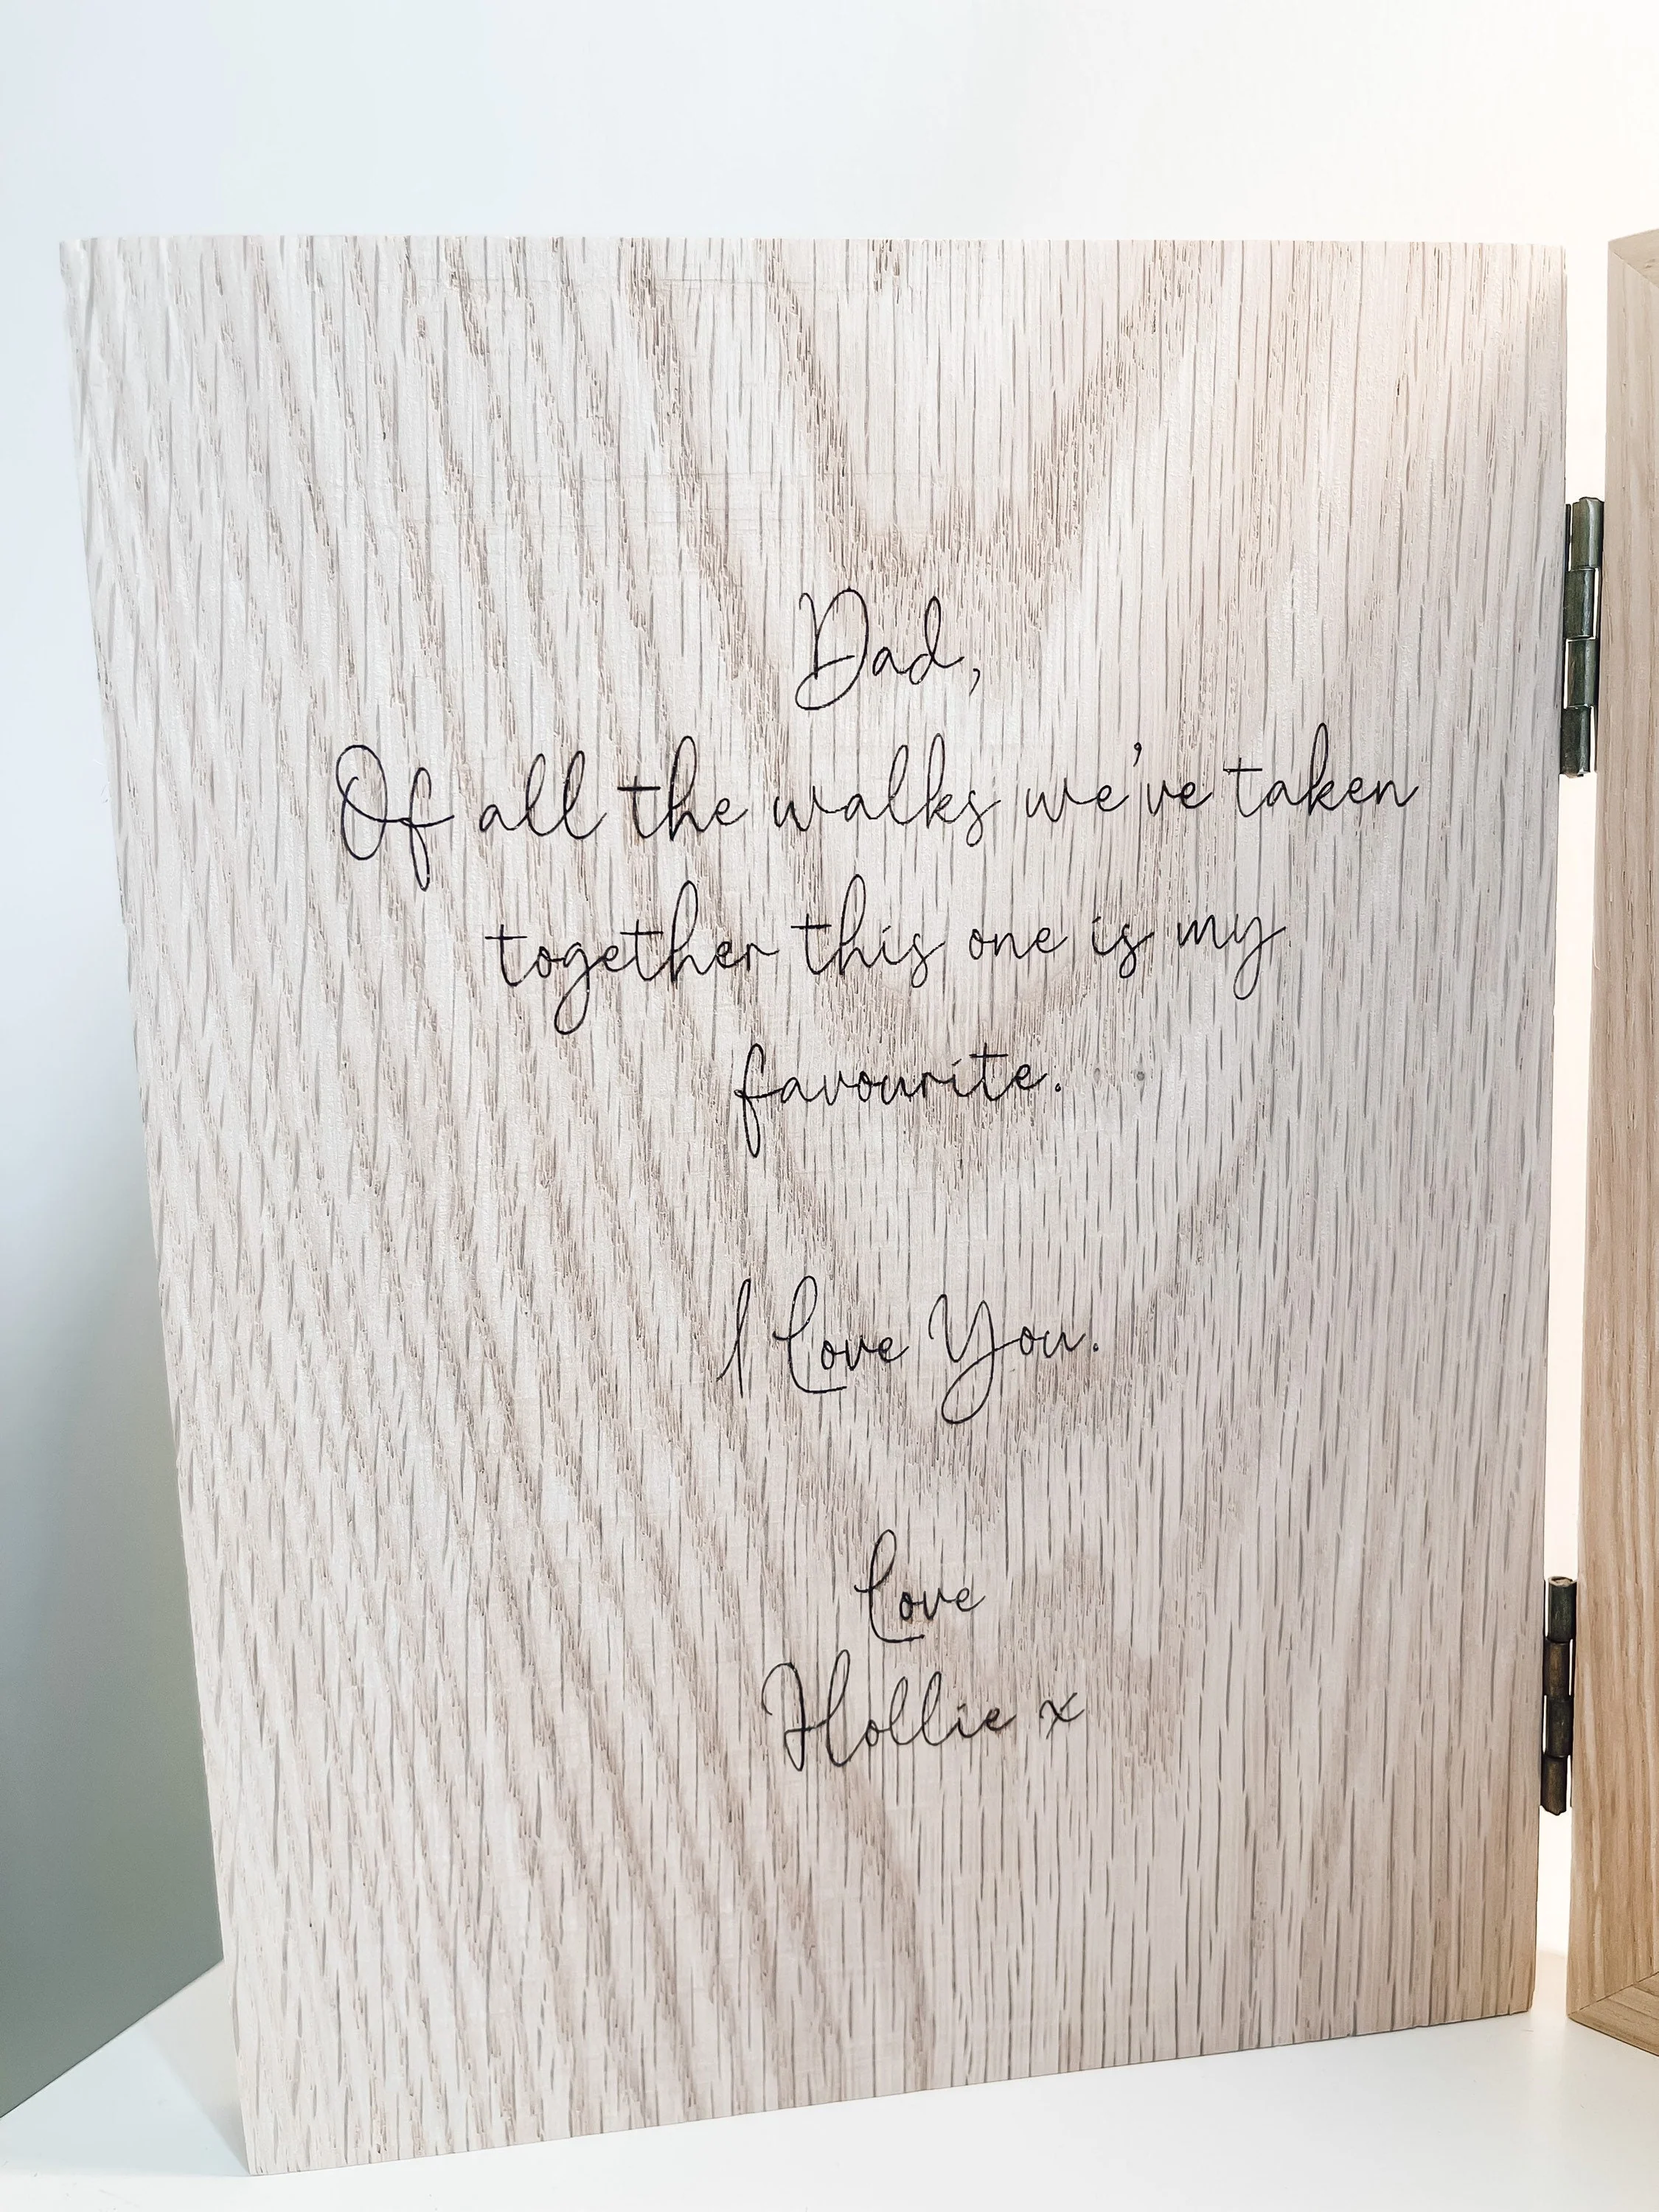 Dad,
Of all the walks we've taken
together this one is my
favourite.
I Love You.
Love
Hollie x